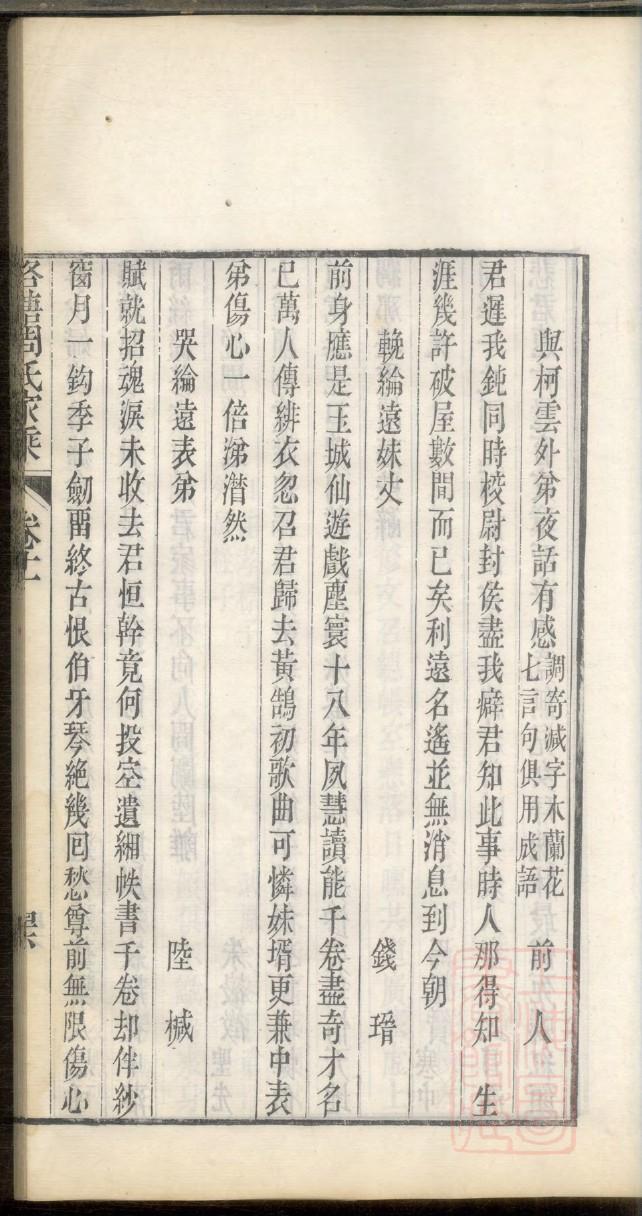 與柯雲外第夜話有感調寄減字木蘭花七言句俱用成語　前人
君遲我鈍同時校尉封侯盡我癖君知此事時人那得知　生
涯幾許破屋數間而已矣利遠名遙並無消息到今朝
輓綸遠妹丈　錢瑨
前身應是玉城仙遊戲塵寰十八年夙慧讀能千卷盡奇才名
已萬人傳緋衣忽召君歸去黃鵠初歌曲可憐妹壻更兼中表
第傷心一倍涕潸然
哭綸遠表第　陸棫
賦就招魂淚未收去君恒幹竟何投空遺緗帙書千卷却伴紗
窗月一鈎季子劒畱終古恨伯牙琴絕幾回愁尊前無限傷心
周氏家乘　卷十二